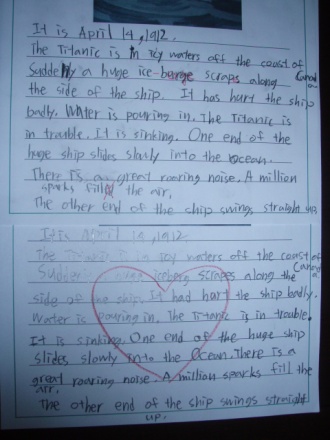 It is April 14, 1912.
The Titanic is in icy waters off the coast of Canada.
Suddenly a huge ice-berge scraps along
the side of the ship. It has hurt the ship
badly. Water is pouring in. The Titanic is
in trouble. It is sinking. One end of the
huge ship slides slowly into the ocean.
There is a great roaring noise. A million
sparks fill the air.
The other end of the ship swings straight up.
It is April 14, 1912
The Titanic is in icy waters off the coast of Canada
Suddenly a huge iceberg scrapes along the
side of the ship. It had hurt the ship badly.
Water is pouring in. The Titanic is in trouble.
It is sinking. One end of the huge ship
slides slowly into the Ocean. There is a
great roaring noise. A million sparks fill the
air.
The other end of the ship swings straight
up.